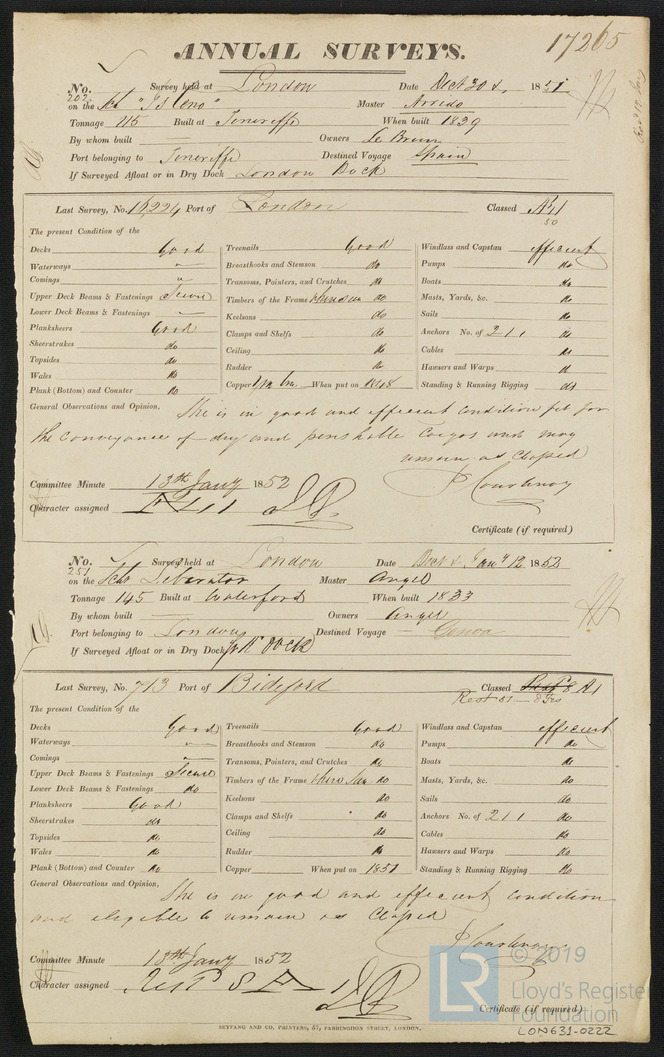 17265
ANNUAL SURVEYS.
No. 202 Survey held at London Date Dect 30 1851
on the Sch Master Arredo
Tonnage 45 Built at Teneriffe When built 1839
By whom built Owners Le Brun
Port belonging to Teneriffe Destined Voyage Spain
If Surveyed Afloat or in Dry Dock London Dock
Last Survey, No. Port of London Classed Æ 1
50
The present Condition of the
Decks Good Treenails Good Windlass and Capstan efficient
Waterways " Breasthooks and Stemson do Pumps do
Comings " Transoms, Pointers, and Crutches do Boats do
Upper Deck Beams & Fastenings Secure Timbers of the Frame where seen do Masts, Yards, &c. do
Lower Deck Beams & Fastenings Keelsons do Sails do
Planksheers Good Clamps and Shelfs do Anchors No. of 2 1 1 do
Sheerstrakes do Ceiling do Cables do
Topsides do Rudder do Hawsers and Warps do
Wales do Copper When put on 1848 Standing & Running Rigging do
Plank (Bottom) and Counter do
General Observations and Opinion, She is in good and efficient condition fit for
the conveyance of dry and perishable Cargos and may
remain as Classed
Committee Minute 13th Jany 1852
Character assigned Æ 1
Certificate (if required)
No. 251 Survey held at London Date Dect & Jany 12 1852
on the Schr Liberator Master Angel
Tonnage 145 Built at Waterford When built 1833
By whom built Owners Angel
Port belonging to London Destined Voyage Genoa
If Surveyed Afloat or in Dry Dock Dock
Last Survey, No. 713 Port of Bideford Classed 8 A1
Rest 51 - 8 Yrs
The present Condition of the
Decks Good Treenails Good Windlass and Capstan efficient
Waterways " Breasthooks and Stemson do Pumps do
Comings " Transoms, Pointers, and Crutches do Boats do
Upper Deck Beams & Fastenings Secure Timbers of the Frame where seen do Masts, Yards, &c. do
Lower Deck Beams & Fastenings do Keelsons do Sails do
Planksheers Good Clamps and Shelfs do Anchors No. of 2 1 1 do
Sheerstrakes do Ceiling do Cables do
Topsides do Rudder do Hawsers and Warps do
Wales do Copper When put on 1851 Standing & Running Rigging do
Plank (Bottom) and Counter do
General Observations and Opinion, She is in good and efficient condition
and eligible to remain as Classed
P Courtenay
Committee Minute 13th Jany 1852
Character assigned Rest 8 A 1
Certificate (if required)
SEYFANG AND CO. PRINTERS, 57, FARRINGDON STREET, LONDON.
LR © 2019
Lloyd's Register
Foundation
LON631-0222